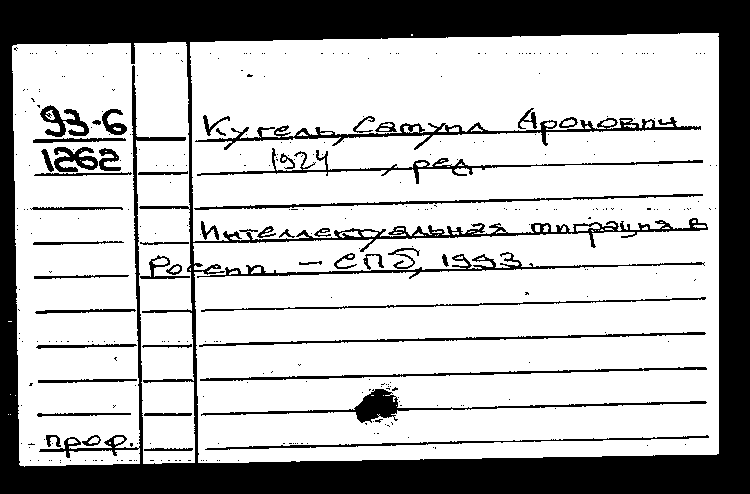 93-6
1262
Кугель, Самуил Аронович
1924 , ред.
Интеллектуальная миграция в
России. – СПб, 1993.
проф.